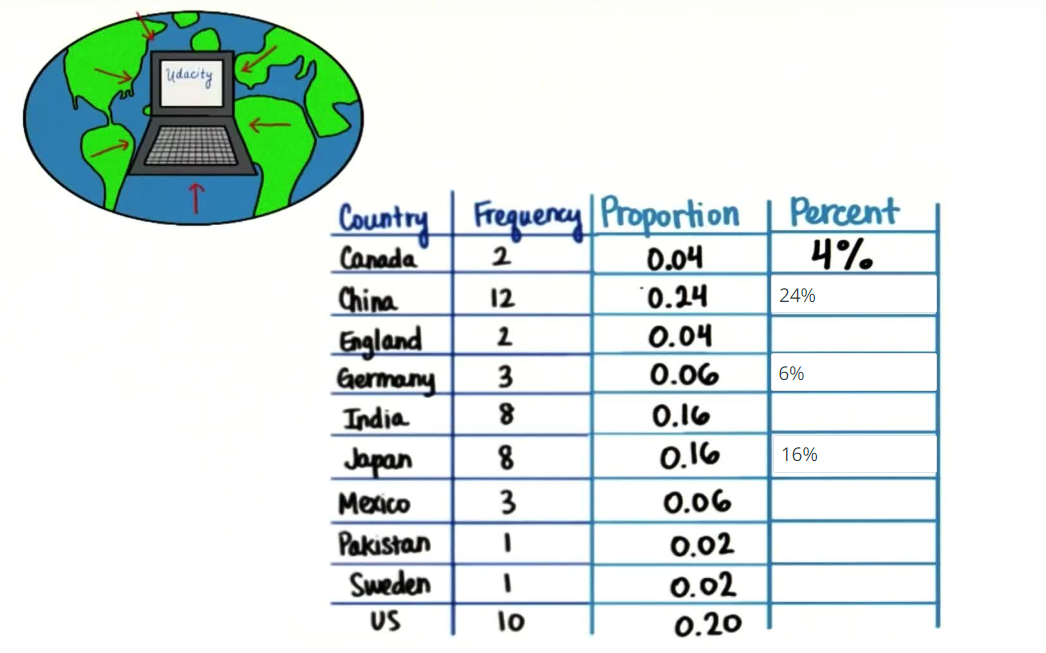 Udacity
Country Frequency Proportion Percent
Canada 2 0.04 4%
China 12 0.24 24%
England 2 0.04
Germany 3 0.06 6%
India 8 0.16
Japan 8 0.16 16%
Mexico 3 0.06
Pakistan 1 0.02
Sweden 1 0.02
US 10 0.20